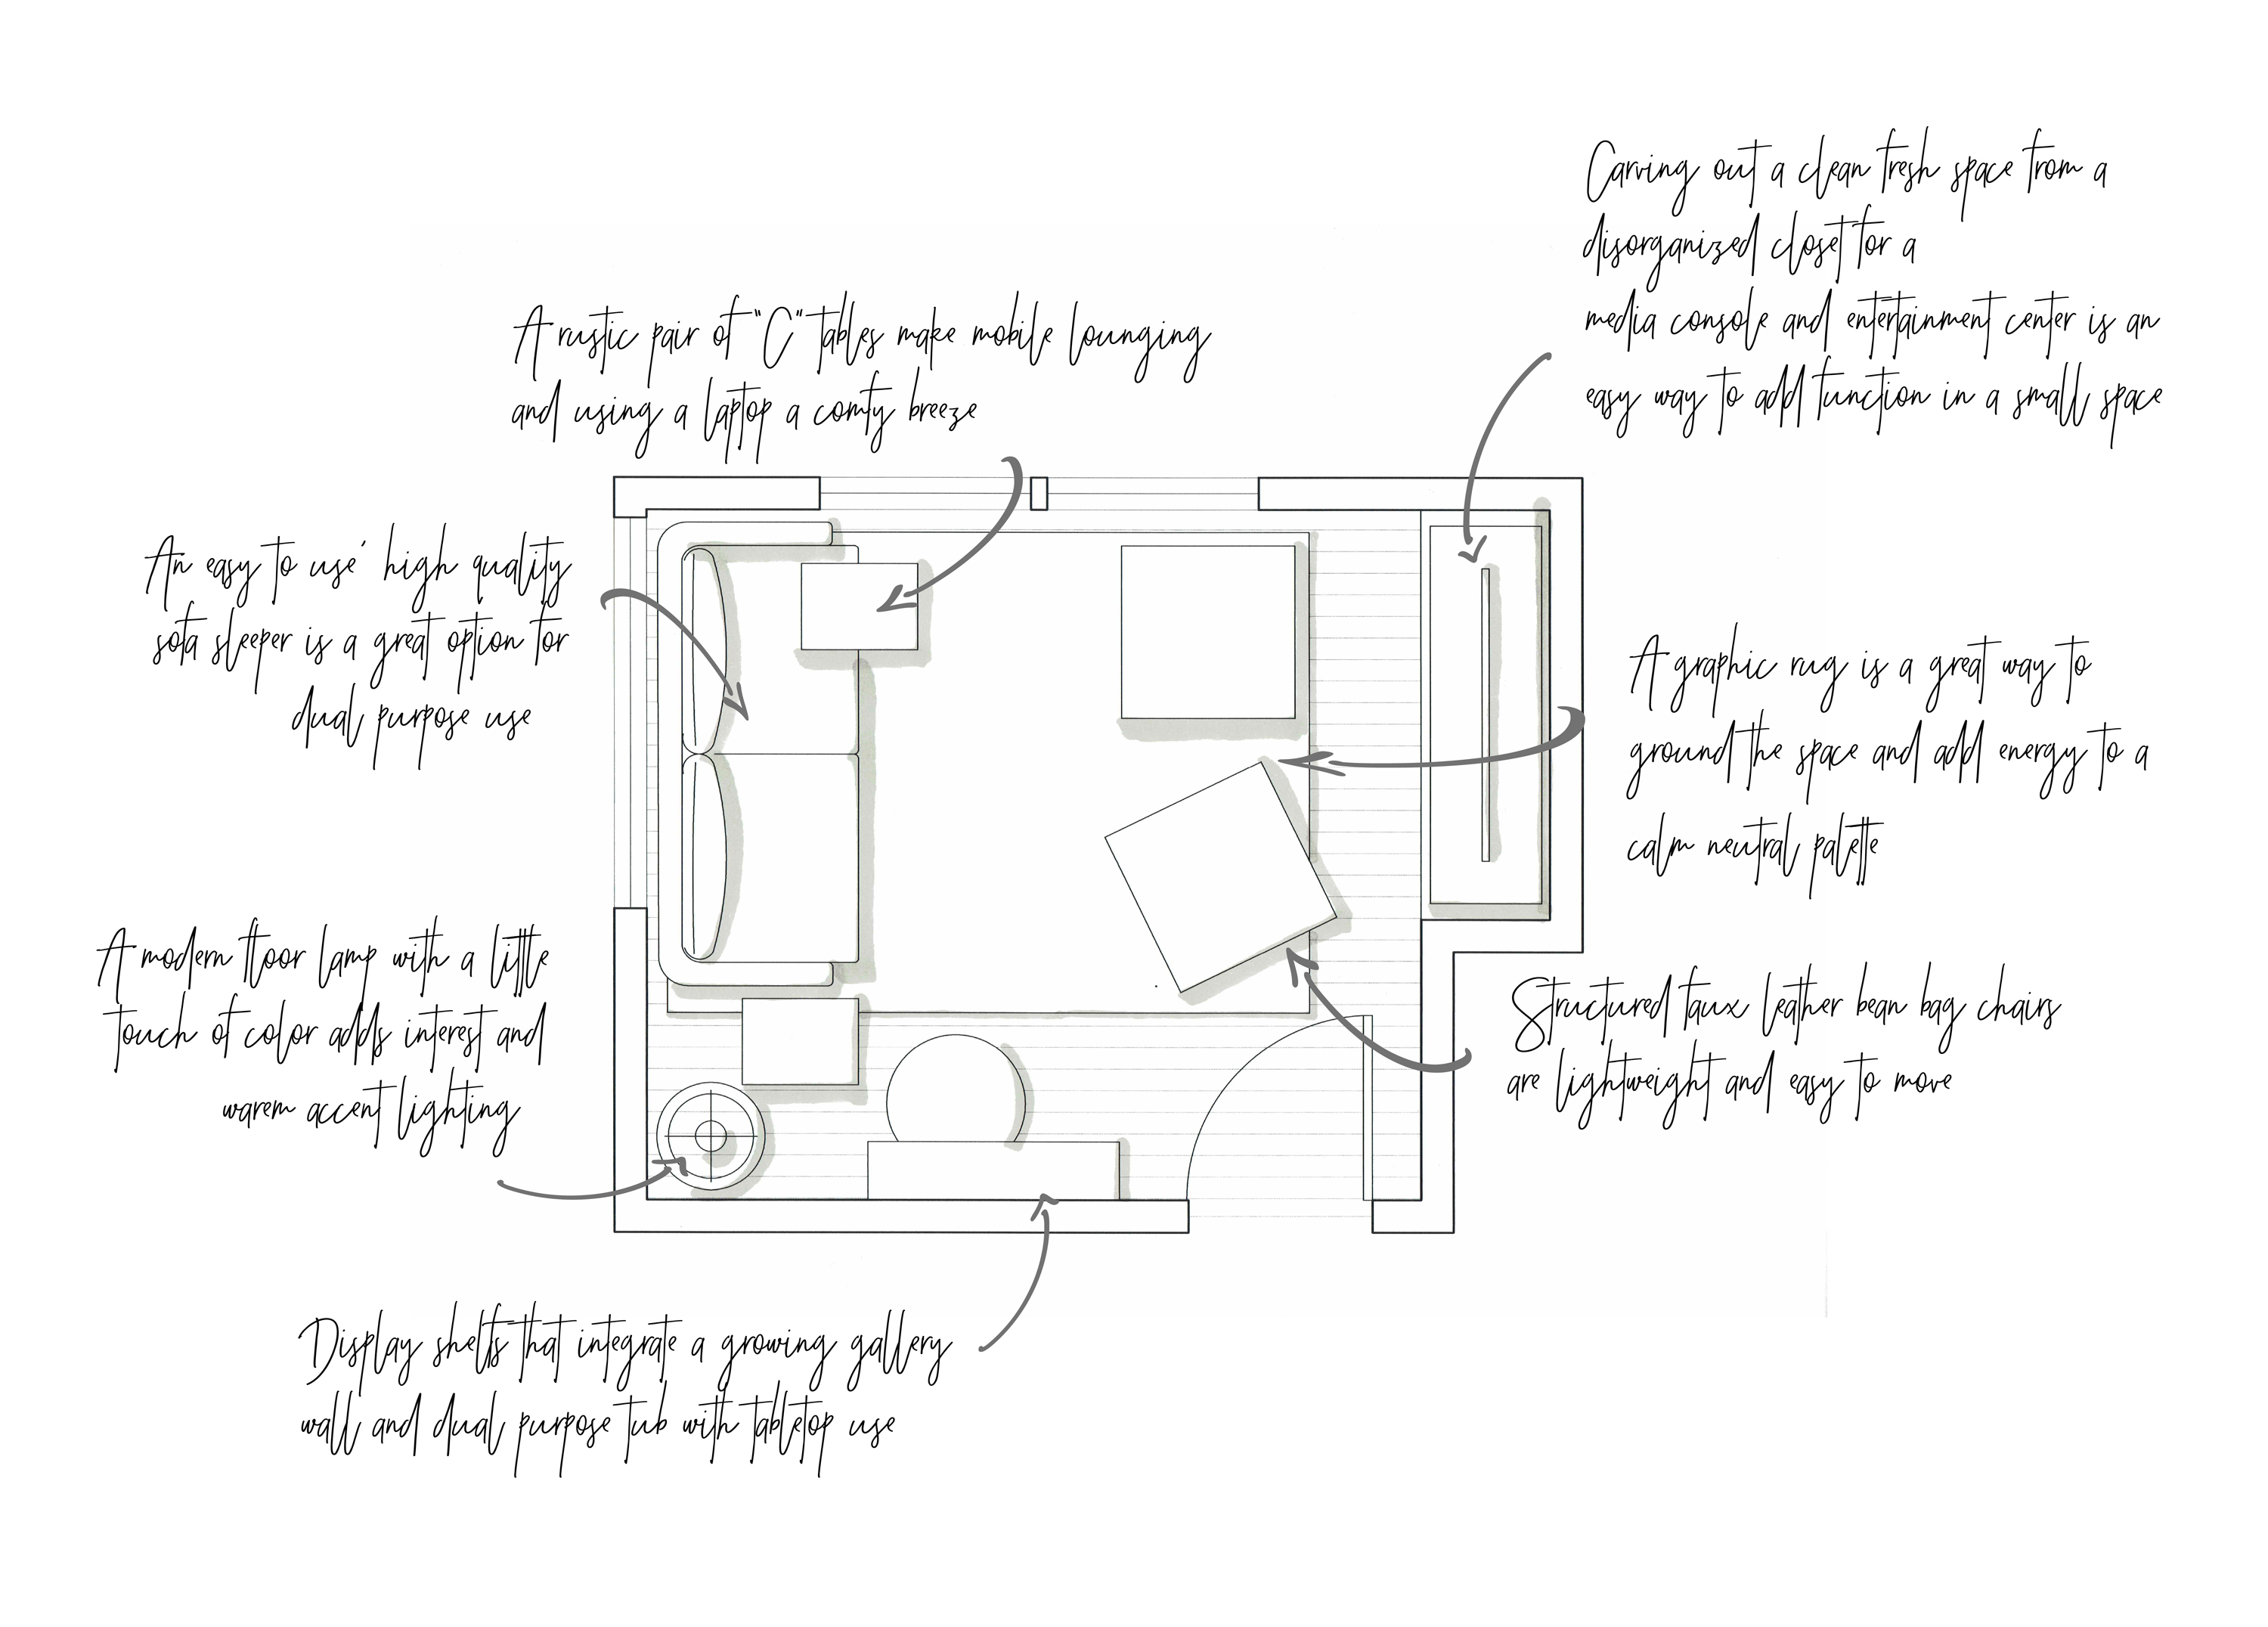 Carving out a clean fresh space from a
disorganized closet for a
media console and entertainment center is an
easy way to add function in a small space
A rustic pair of "C" tables make mobile lounging
and using a laptop a comfy breeze
An easy to use' high quality
sofa sleeper is a great option for
dual purpose use
A graphic rug is a great way to
ground the space and add energy to a
calm neutral palette
A modern floor lamp with a little
touch of color adds interest and
warem accent lighting
Structured faux leather bean bag chairs
are lightweight and easy to move
Display shelfs that integrate a growing gallery
wall and dual purpose tub with tabletop use